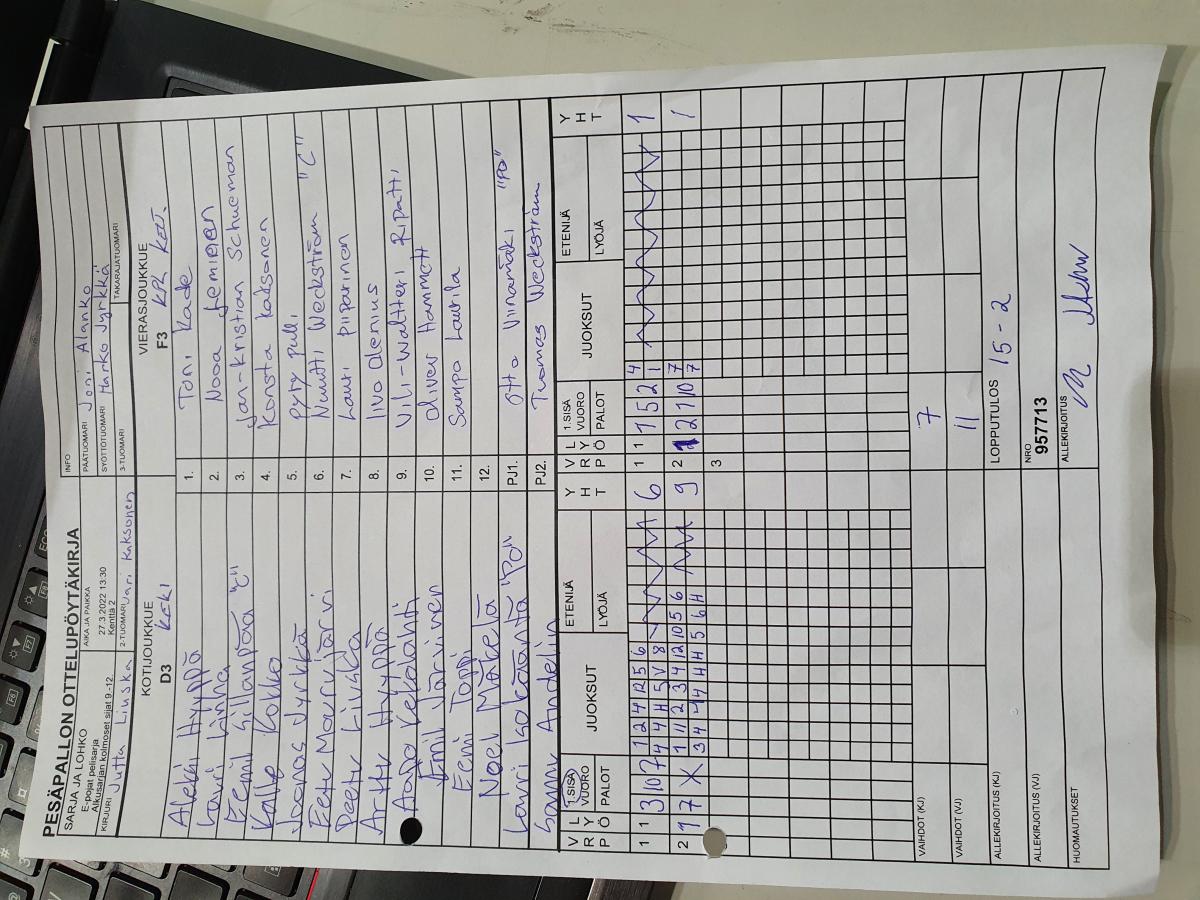 PESÄPALLON OTTELUPÖYTÄKIRJA
SARJA JA LOHKO
E-pojat pelisarja
Alkusarjan kolmoset sijat 9.-12.
AIKA JA PAIKKA
27.3.2022 13:30
Kenttä 2
INFO
PÄÄTUOMARI Joni Alanko
SYÖTTÖTUOMARI Marko Jyrkkä
KIRJURI Jutta Liuska
2-TUOMARI Jari Kaksonen
3-TUOMARI
TAKARAJATUOMARI
KOTIJOUKKUE
D3 KeKi
VIERASJOUKKUE
F3 KPL Kelt.
Aleksi Hyyppä 1. Toni Kade
Lauri Linna 2. Nooa Jeminen
Eemil Sillanpää "C" 3. Jan-Kristian Schueman
Kalle Kokko 4. Konsta Kaksonen
Joona Jyrkkä 5. Pyry Pulli
Eetu Marusjärvi 6. Nuutti Weckström "C"
Peetu Liuska 7. Lauri Piiparinen
Arttu Hyyppä 8. Iivo Olenius
Aapo Keltalahti 9. Vili-Waltteri Ripatti
Emil Järvinen 10. Oliver Hammott
Eemi Toppi 11. Sampo Laurila
Noel Mäkelä 12.
Lauri Isokääntä "PJ" PJ1. Otto Viinamäki "PJ"
Samu Andelin PJ2. Tuomas Weckström
V R P L Y Ö 1.SISÄ VUORO PALOT JUOKSUT ETENIJÄ LYÖJÄ Y H T
V R P L Y Ö 1.SISÄ VUORO PALOT JUOKSUT ETENIJÄ LYÖJÄ Y H T
1 1 3 10 7 1 2 4 12 5 6 6
4 4 H 5 V 8
1 1 7 5 2 4 1
1
2 1 7 X 1 11 2 3 4 12 10 5 6 9
3 4 4 4 H H 5 6 H
2 2 7 10 7 1
7
3
VAIHDOT (KJ) 7
VAIHDOT (VJ) 11
ALLEKIRJOITUS (KJ)
LOPPUTULOS 15-2
ALLEKIRJOITUS (VJ)
NRO
957713
HUOMAUTUKSET
ALLEKIRJOITUS